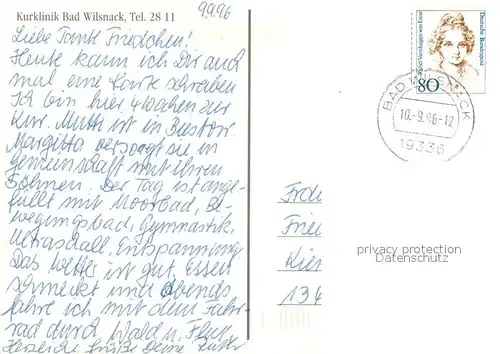 Kurklinik Bad Wilsnack, Tel. 28 11
9.9.96
Liebe Tante Friedchen!
Heute kann ich Dir auch
mal eine Karte schreiben
Ich bin hier 4 Wochen zur
Kur. Mutti ist in Bustow.
Margitta versorgt sie in
Gemeinschaft mit ihren
Söhnen. Der Tag ist ange-
füllt mit Moorbad, Be-
wegungsbad, Gymnastik,
Ultraschall, Entspannung
Das Wetter ist gut. Essen
schmeckt und abends
fahre ich mit dem Fahr-
rad durch Wald u. Flur
Herzliche Grüße Deine
Deutsche Bundespost
80
BAD WILSNACK
10.-9.96-12
19336
Frau
Frie
134
privacy protection
Datenschutz